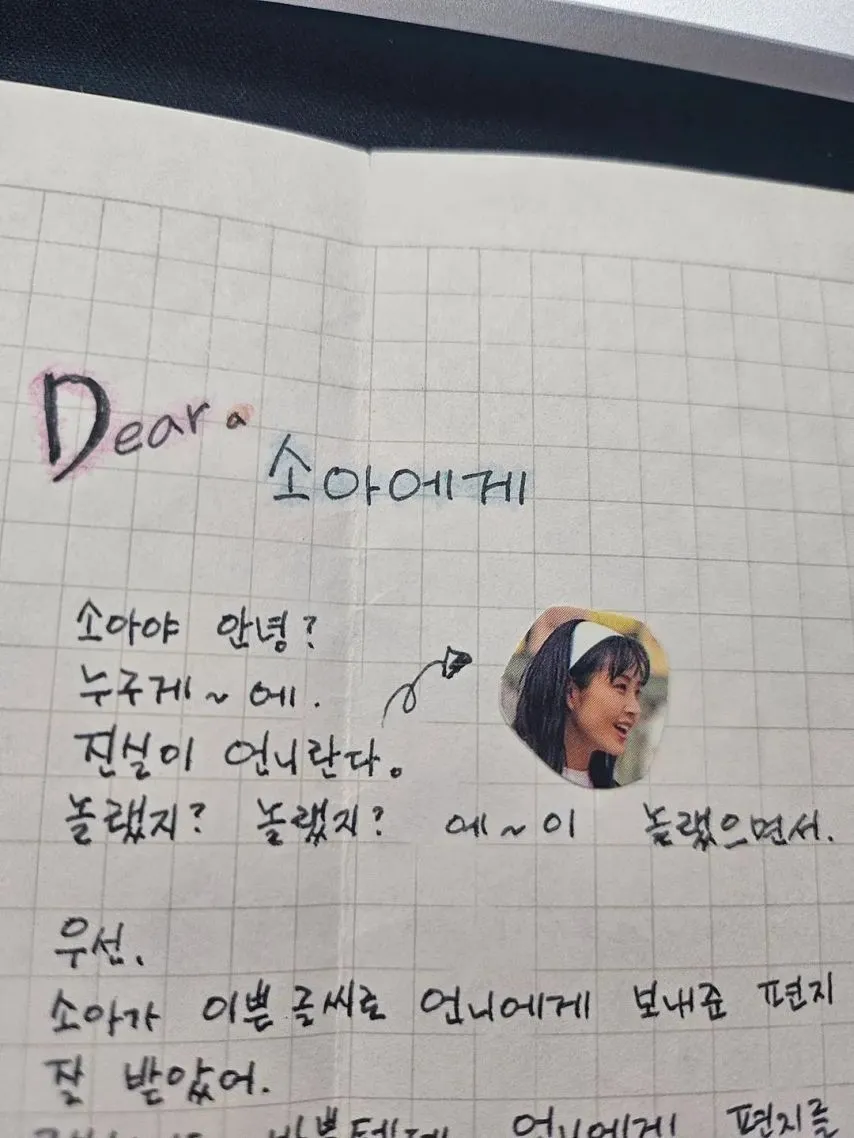 Dear.
소아에게
소아야 안녕?
누구게~에.
진실이 언니란다.
놀랬지? 놀랬지? 에~이 놀랬으면서.
우선.
소아가 이쁜 글씨로 언니에게 보내준 편지
잘 받았어.
바쁠텐데 언니에게 편지를